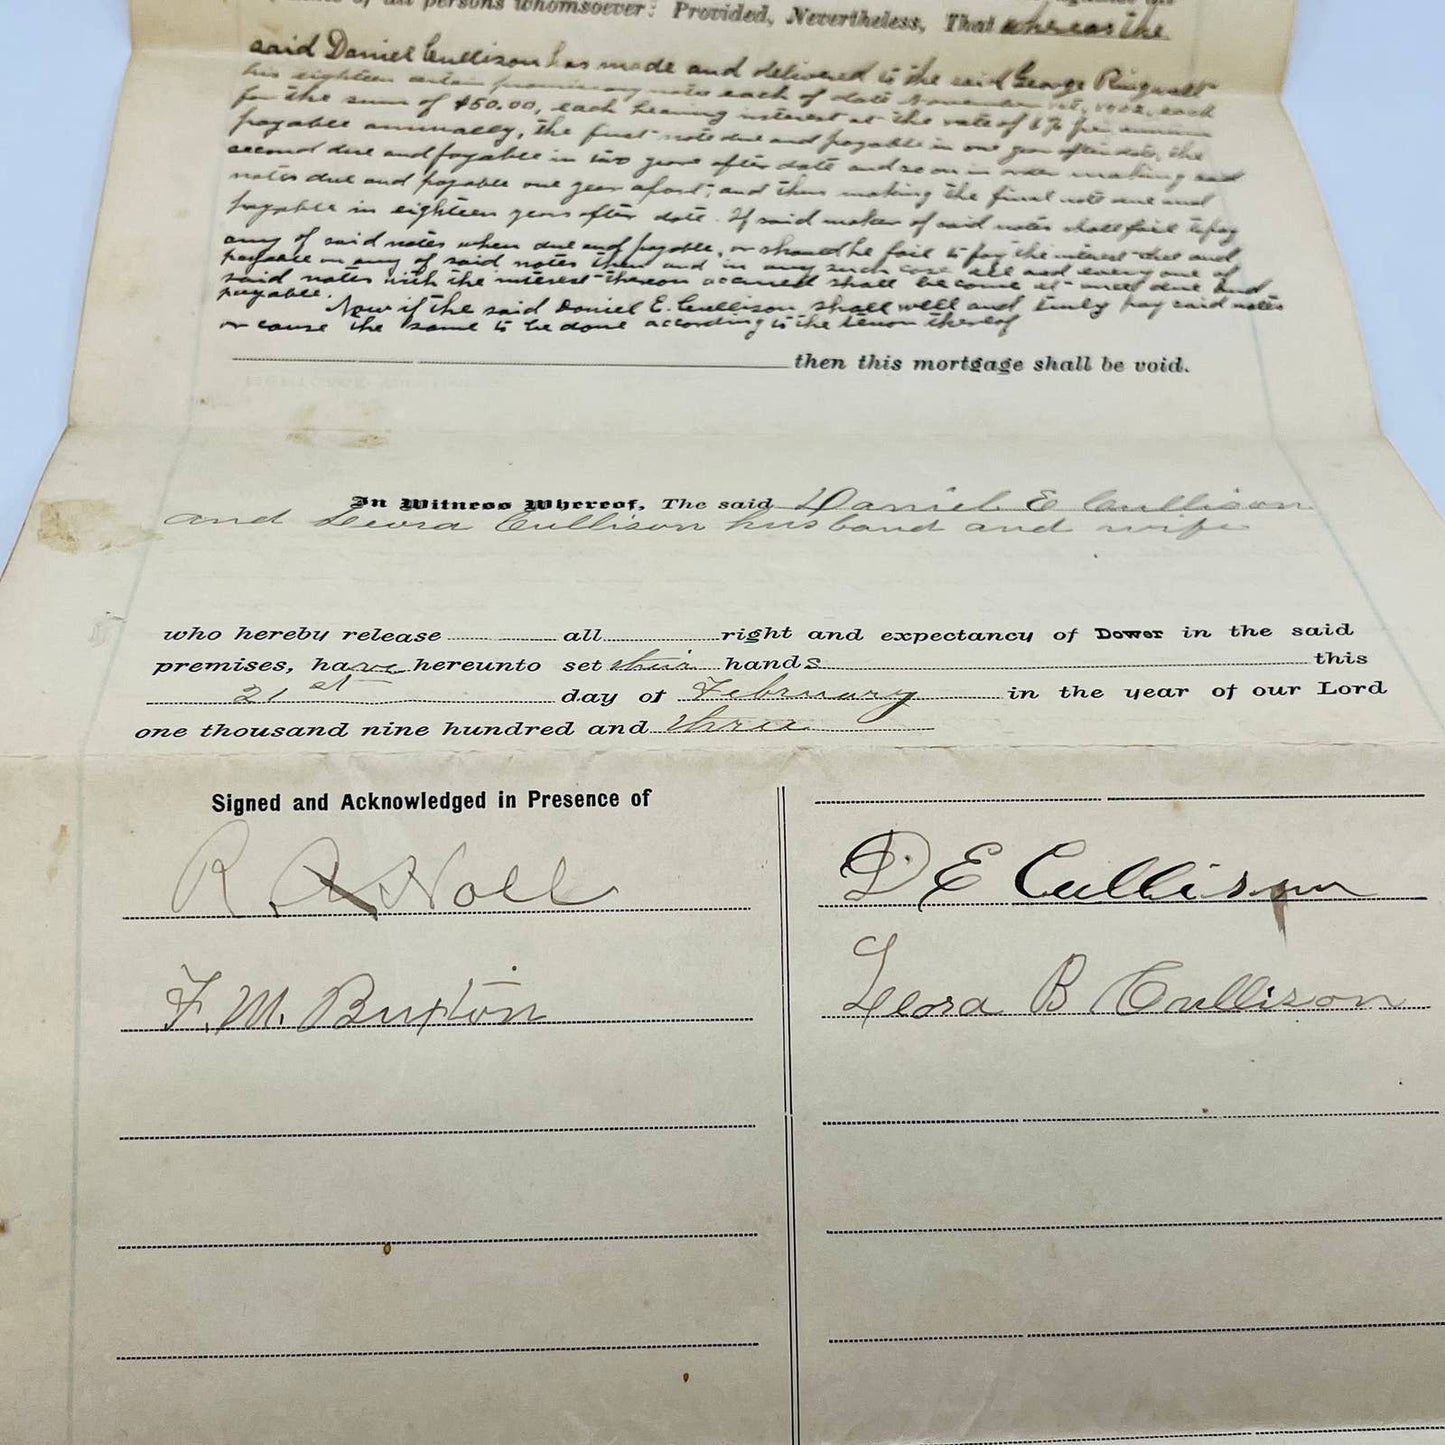 of all persons whomsoever: Provided, Nevertheless, That whereas the
said Daniel Cullison has made and delivered to the said George Ringwalt
his eighteen certain promissory notes each of date November 1st, 1902, each
for the sum of $50.00, each bearing interest at the rate of 6% per annum
payable annually, the first note due and payable in one year after date, the
second due and payable in two years after date and so on in order making said
notes due and payable one year apart; and thus making the final note due and
payable in eighteen years after date. If said maker of said notes shall fail to pay
any of said notes when due and payable, or should he fail to pay the interest due and
payable on any of said notes then and in any such case all and every one of
said notes with the interest thereon accrued shall become at once due and
payable.
Now if the said Daniel E. Cullison shall well and truly pay said notes
or cause the same to be done according to the tenor thereof
then this mortgage shall be void.
In Witness Whereof, The said Daniel E Cullison
and Leora Cullison husband and wife
who hereby release all right and expectancy of Dower in the said
premises, have hereunto set their hands this
21st day of February in the year of our Lord
one thousand nine hundred and three
Signed and Acknowledged in Presence of
R. A. Noll
D E Cullison
F. M. Buxton
Leora B Cullison